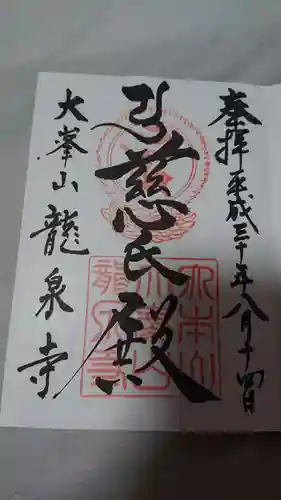 奉拝 平成三十年八月十四日
弥慈氏殿
大峯山 龍泉寺